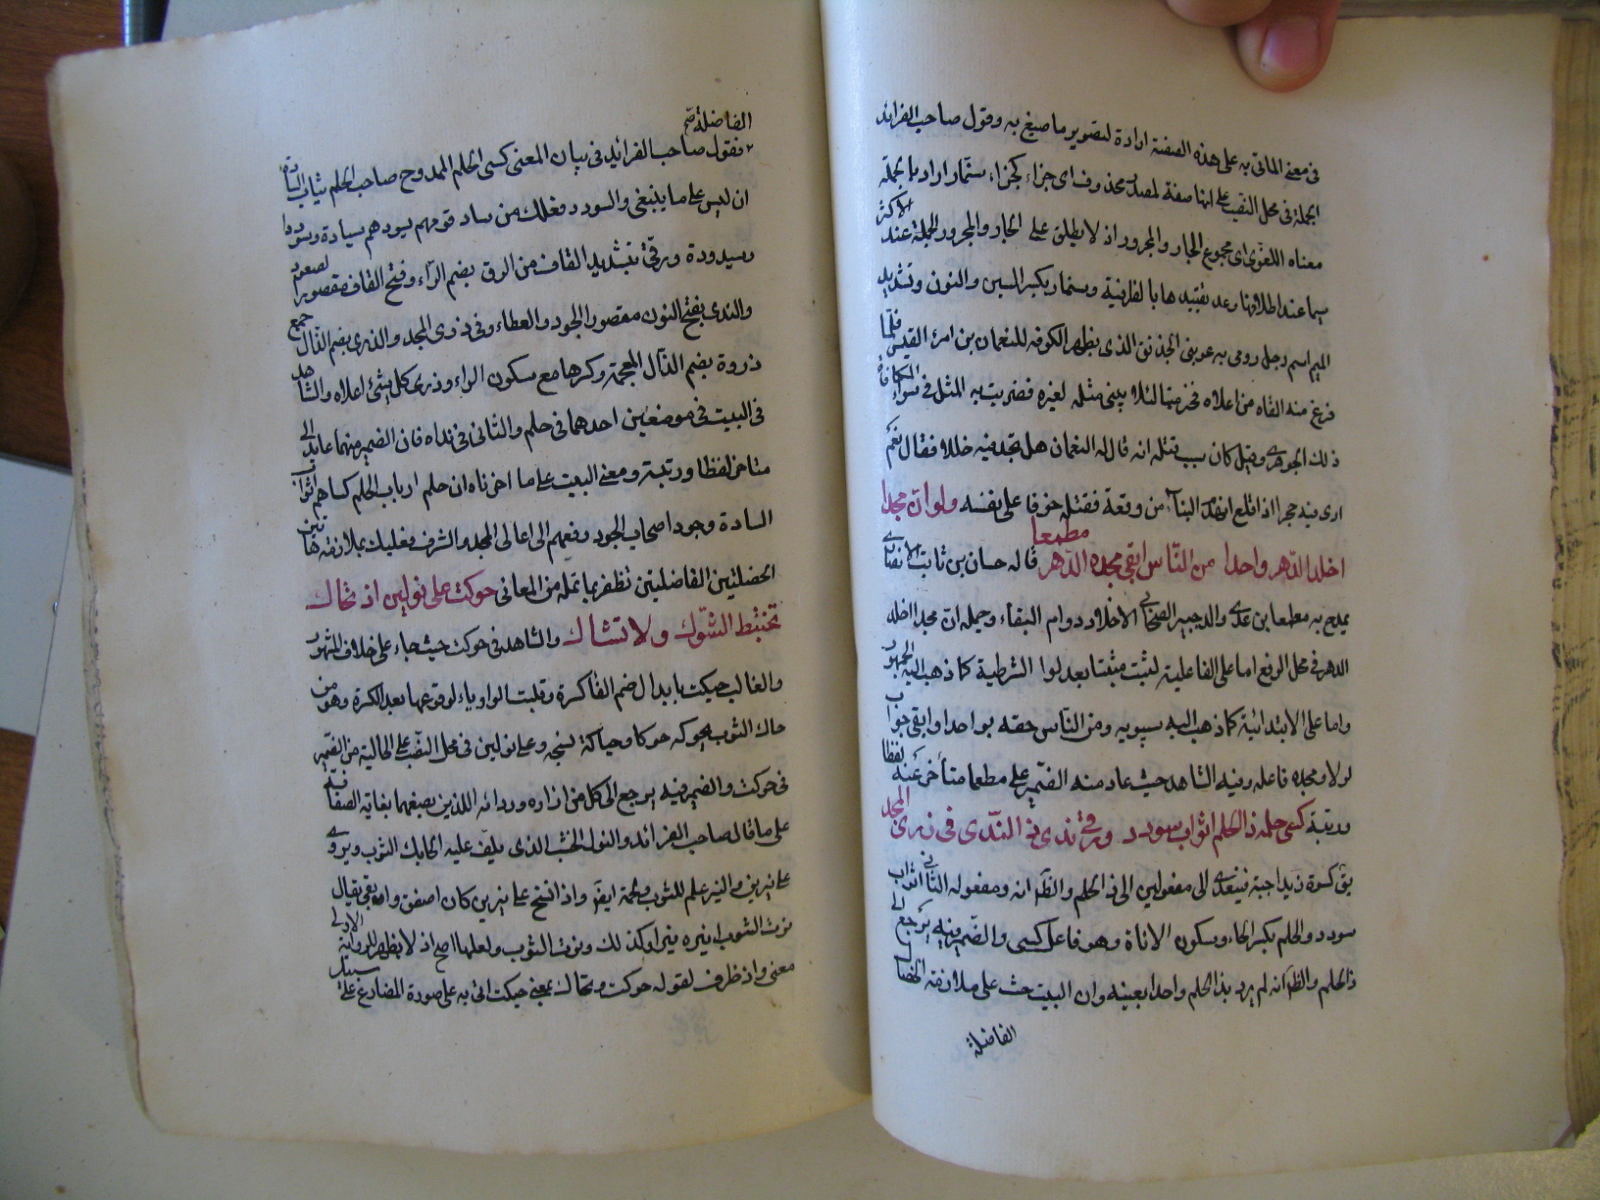 في معنى الماتى به على هذه الصفة ارادة لتصوير ما صيغ به وقول صاحب الفرائد
الجملة في محل النصب على انها صفة لمصدر محذوف اى جزاء كجزاء سنمار اراد با لجملة
معناه اللغوى اى مجموع الجار والمجرور اذ لا يطلق على الجار والمجرور الجملة عند الاكثر
سيما عند اطلاقها وعدم تقييدها بالظرفية وسنمار بكسر السين والنون وتشديد
الميم اسم رجل رومى بنى الخورنق الذى بظهر الكوفه للنعمان بن امرئ القيس فلما
فرغ منه القاه من اعلاه فخر ميتا لئلا يبنى مثله لغيره فضربت به المثل في سواء المكافاة
ذلك الجوهرى وقيل كان سبب قتله انه قال له النعمان هل تجد فيه خللا فقال نعم
ارى فيه حجرا اذا قلع انهد البناء من وقعة فقتله خوفا على نفسه ولو ان مجدا
اخلد الدهر واحدا من الناس ابقى مجده الدهر مطعما قاله حسان بن ثابت الانصارى
يمدح به مطعما بن عدى والد جبير الصحابى الاخلاد دوام البقاء وجمله ان مجدا اخلد
الدهر في محل الرفع اما على الفاعلية لثبت مثبتا بعد لوا الشرطية كما ذهب اليه الجمهور
واما على الابتدائية كما ذهب اليه سيبويه ومن الناس صفه بواحدا وابقى جواب
لولا ومجده فاعله وفيه الشاهد حيث عاد منه الضمير على مطعما متأخر عنه لفظا
ورتبة كسى حلمه ذا الحلم اثواب سودد ورقى نداه ذا الندى في ذرى المجد
يق كسوة زيدا جبة فيتعدى الى مفعولين الى ذا الحلم والظ انه ومفعوله الثانى اثواب
سودد والحلم بكسر الحاء وسكون الاناة وهو فاعل كسى والضمير فيه يرجع الى
ذا الحلم والظ انه لم يرد بذا الحلم واحدا بعينه وان البيت حث على ملازمة الخصال
الفاضلة
الفاضلة صم
فقول صاحب الفرائد في بيان المعنى كسى الحلم الممدوح صاحب الحلم ثياب السادة
ان ليس على ما ينبغى والسودد فعلك من ساد قومهم يسودهم سيادة وسوددا
وسيدودة ورقى بتشديد القاف من الرقى بضم الراء وفتح القاف مقصورا لصعود
والندى بفتح النون مقصور الجود والعطاء وفي ذرى المجد والذرى بضم الذال جمع
ذروة بضم الذال المعجمة وكسرها مع سكون الراء وذرى كل شئ اعلاه والشاهد
في البيت في موضعين احدهما في حلم والثانى في نداه فان الضمير منهما عايد الى
متاخر لفظا ورتبة ومعنى البيت على ما اخرناه ان حلم ارباب الحلم كساهم اثواب
السادة وجود اصحاب الجود رفعهم الى اعالى المجد والشرف فعليك بملازمة هاتين
الخصلتين الفاضلتين تظفر بما تمله من المعانى حوكت على نولين اذ تحاك
تختبط الشوك ولا تشاك والشاهد في حوكت حيث جاء على خلاف المشهور
والغالب حيكت بابدال ضم الفا كسرة وقلبت الواو ياء لوقوعها بعد الكسرة وهو من
حاك الثوب يحوكه حوكا وحياكة نسجه وعلى نولين في محل النصب على الحالية من الضمير
في حوكت والضمير فيه يرجع الى كل من ازاره وردائه اللذين يصفهما بغاية الصفاقة
على ما قال صاحب الفرائد والنول الخشب الذى يلف عليه الحايك الثوب ويروى
على نيرين والنير علم للثوب ولحمة ايضا واذا نسج على نيرين كان اصفق وابقى يقال
نرت الثوب انيره نيرا وكذلك ونرت الثوب ولعلها اصح اذ لا يظهر للرواية الاولى
معنى واذ ظرف لقوله حوكت وتحاك بمعنى حيكت اتى به على صورة المضارع على سبيل